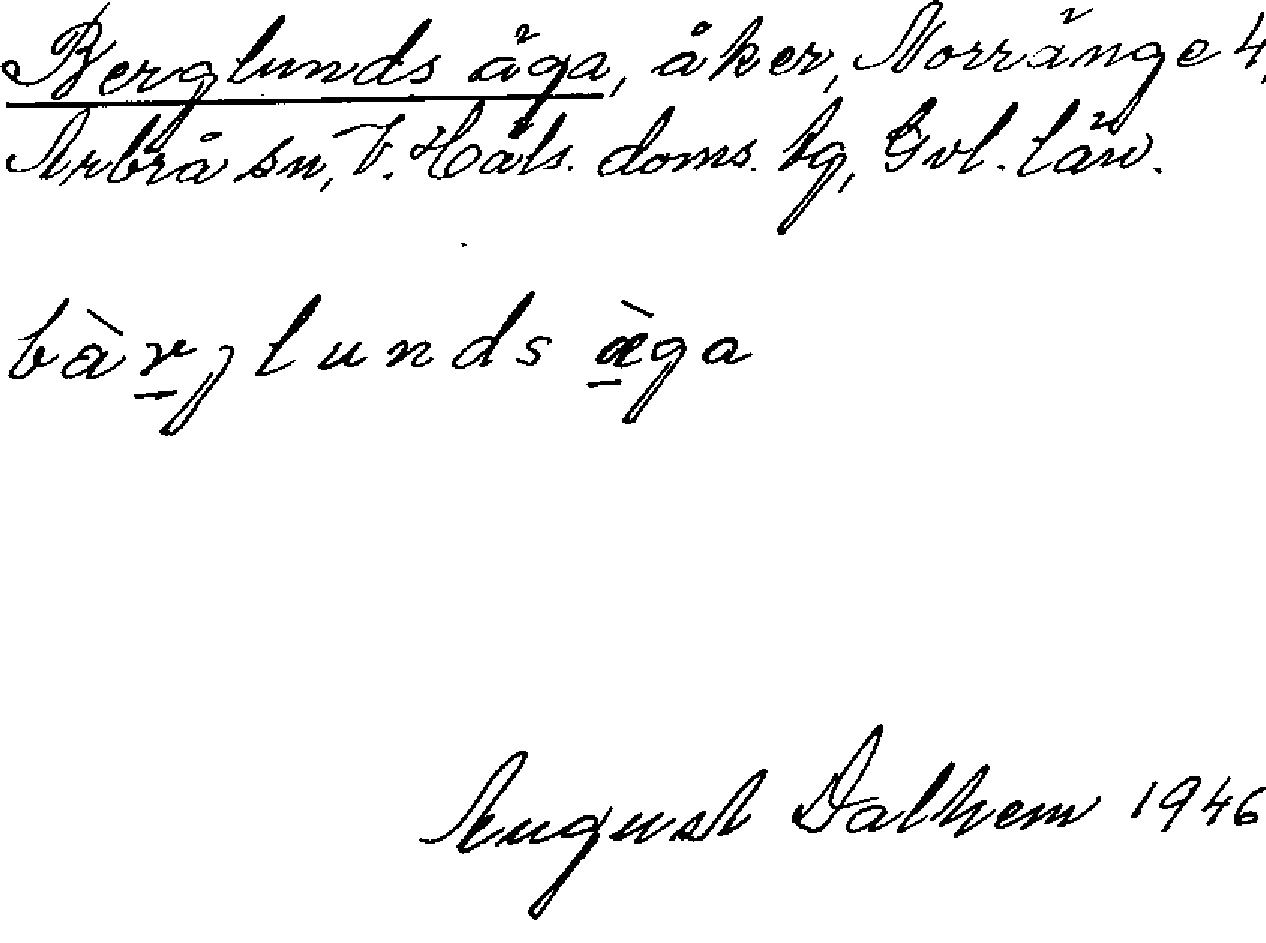 Berglunds äga, åker, Norränge 4,
Arbrå sn, V. Häls. doms. tg, Gvl. län.
bàrglunds æ̀ga
August Dalhem 1946